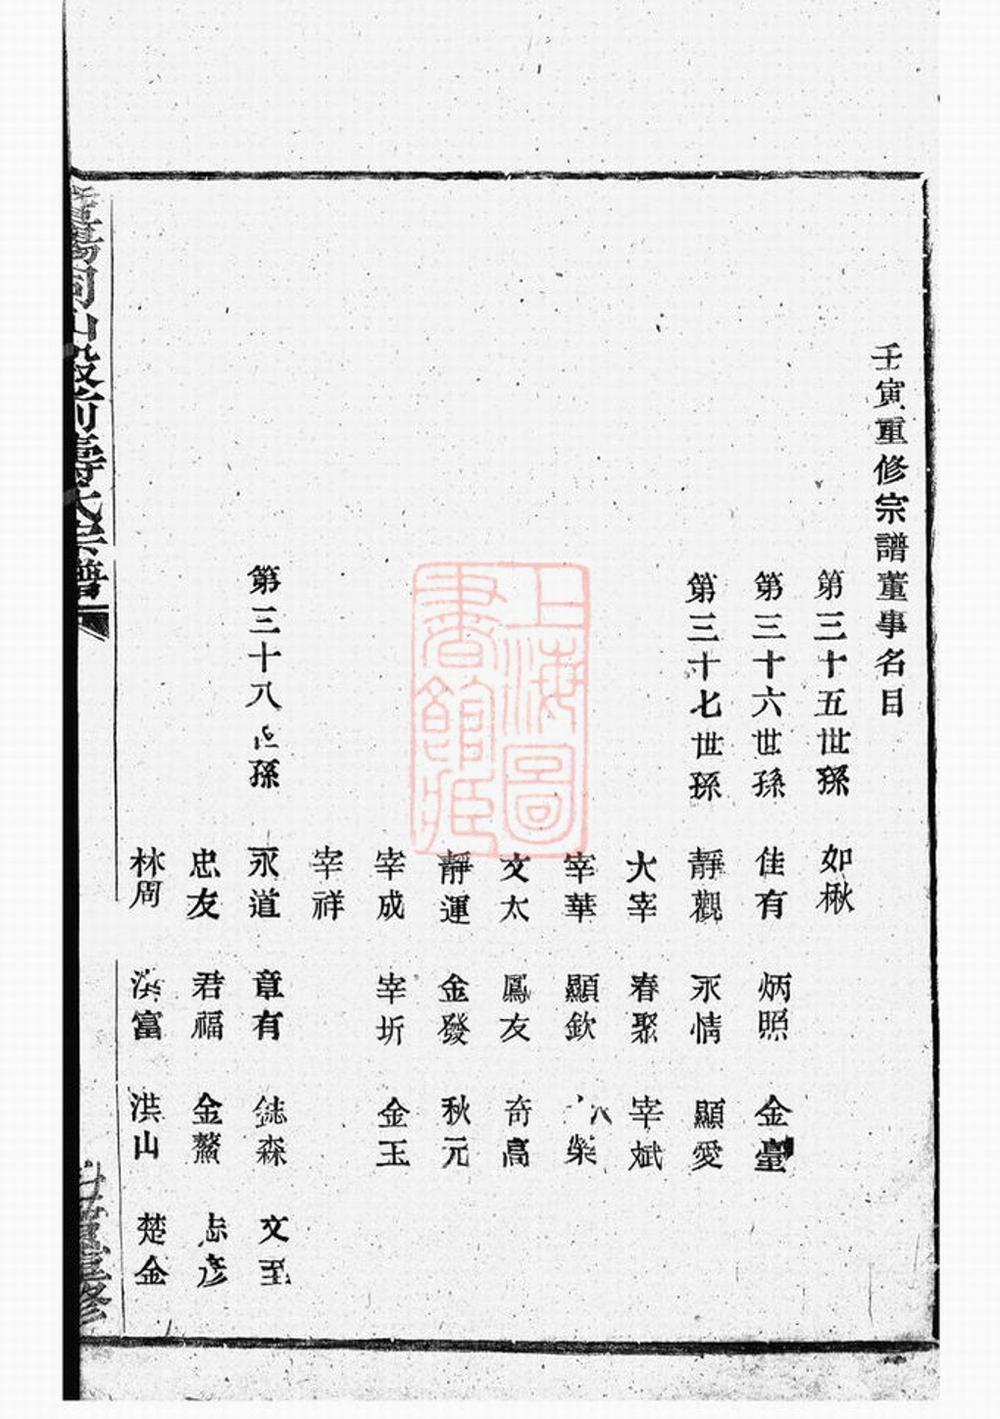 壬寅重修宗譜董事名目
第三十五世孫 如楸
第三十六世孫 佳有 炳照 金臺
第三十七世孫 靜觀 永情 顯愛
大宰 春聚 宰斌
宰華 顯欽 榮
文太 鳳友 奇高
靜運 金發 秋元
宰成 宰圻 金玉
宰祥
第三十八世孫 永道 章有 鋕森 文至
忠友 君福 金鰲 志彦
林周 洪富 洪山 楚金
暨陽同山殿前壽氏宗譜
重修
上海圖書館藏